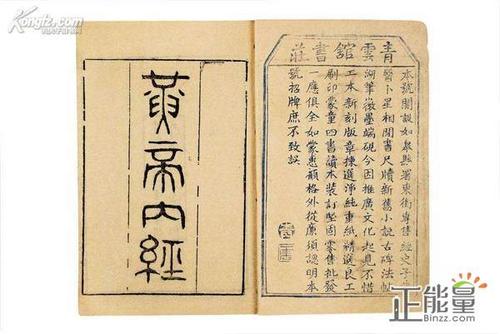 Kongfz.com
青雲舘書莊
本號開設如皋縣署東街專售經史子
醫卜星相閒書尺牘新舊小說古碑法帖
湖筆徽墨端硯今因推廣文化起見不惜
工本新刻版章揀選淨純重紙精選良工
刷印蒙童四書讀本裝訂堅固零售批發
一應俱全如蒙惠顧格外從廉須認明本
號招牌庶不致誤
黃帝內經
正能量
Binzz.com